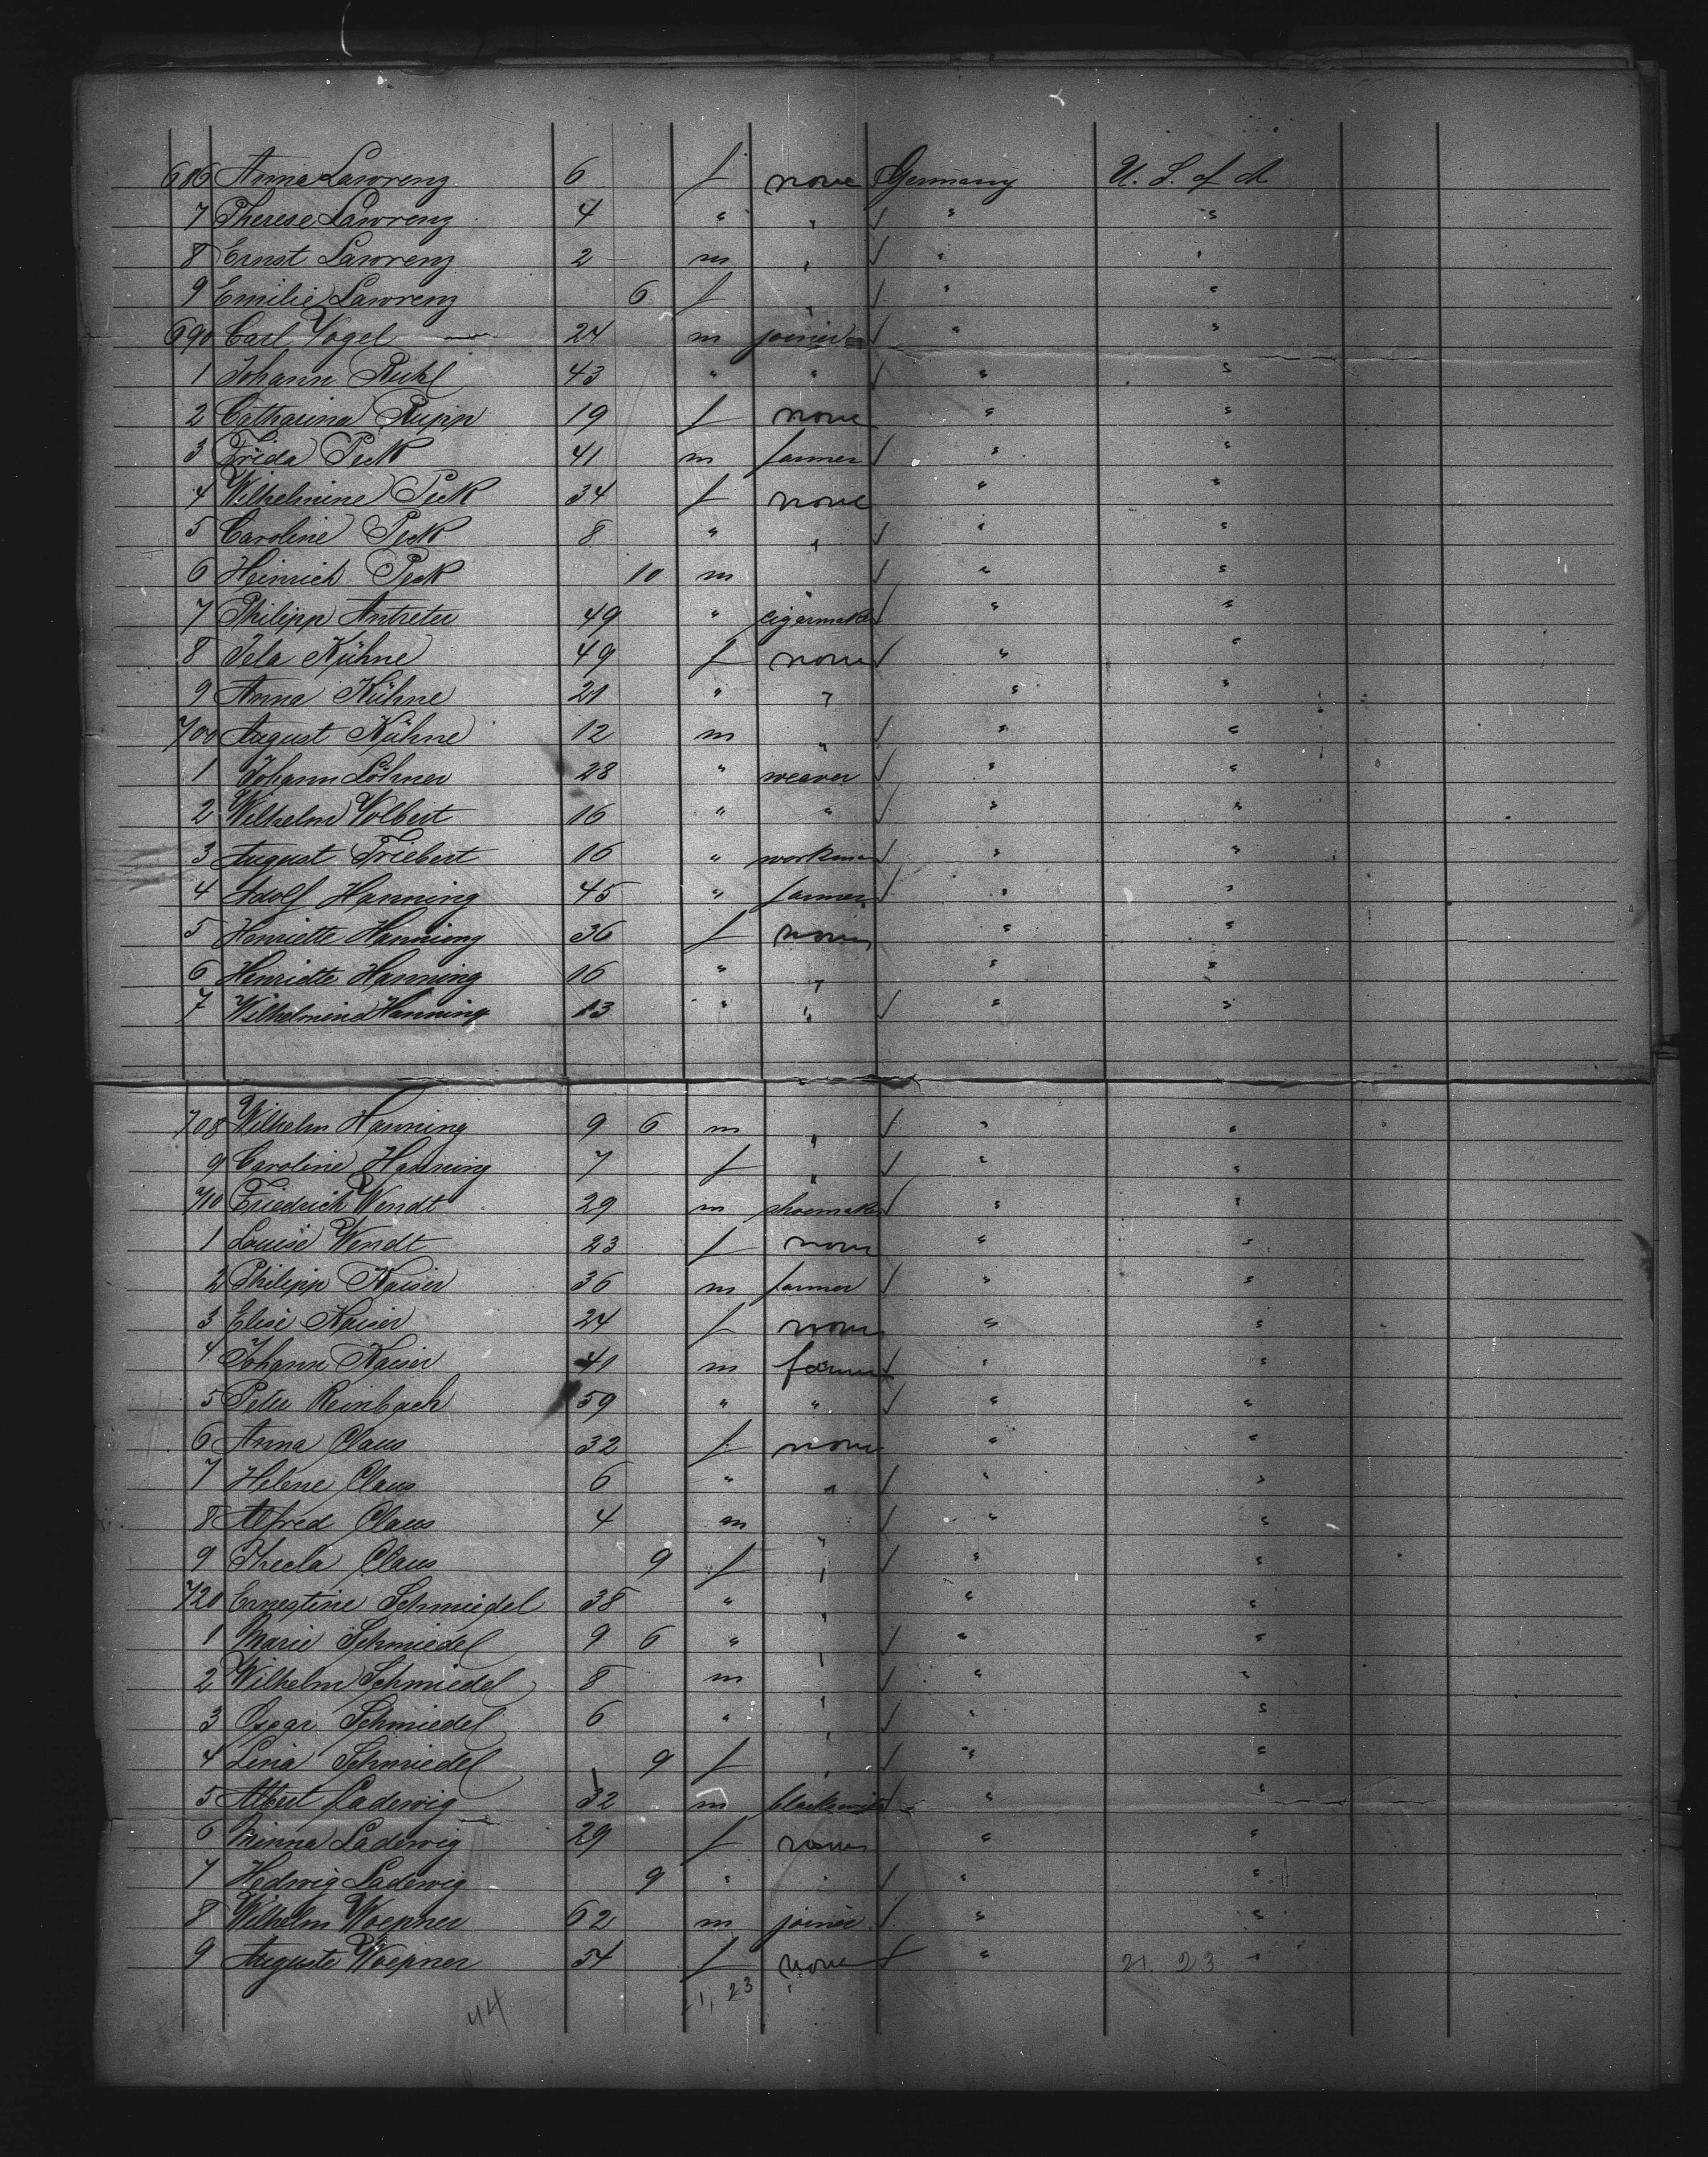 686 Anna Lawrenz 6 f none Germany U. S. of A
7 Therese Lawrenz 4 " " ✓ " "
8 Ernst Lawrenz 2 m " ✓ " "
9 Emilie Lawrenz 6 f " ✓ " "
690 Carl Vogel — 24 m joiner ✓ " "
1 Johann Ruhl 43 " " ✓ " "
2 Catharina Rupp 19 f none " "
3 Frida Peek 41 m farmer ✓ " "
4 Wilhelmine Peek 34 f none " "
5 Caroline Peek 8 " " ✓ " "
6 Heinrich Peek 10 m " ✓ " "
7 Philipp Antreter 49 " cigarmaker ✓ " "
8 Kühne 49 f none ✓ " "
9 Anna Kühne 21 " " " "
700 August Kühne 12 m " ✓ " "
1 Johann Löhner 28 " weaver ✓ " "
2 Wilhelm Volbert 16 " " ✓ " "
3 August Triebert 16 " workman ✓ " "
4 Adolf Hanning 45 " farmer ✓ " "
5 Henriette Hanning 36 f none " "
6 Henriette Hanning 16 " " " "
7 Wilhelmine Hanning 13 " " ✓ " "
708 Wilhelm Hanning 9 6 m " ✓ " "
9 Caroline Hanning 7 f " ✓ " "
710 Friedrich Wendt 29 m shoemaker ✓ " "
1 Louise Wendt 23 f none " "
2 Philipp Kaiser 36 m farmer ✓ " "
3 Elise Kaiser 24 f none " "
4 Johann Kaiser 41 m farmer ✓ " "
5 Peter Reinbach 59 " " ✓ " "
6 Anna Claus 32 f none " "
7 Helene Claus 6 " " ✓ " "
8 Alfred Claus 4 m " ✓ " "
9 Thecla Claus 9 f " ✓ " "
720 Ernestine Schmiedel 38 " " " "
1 Marie Schmiedel 9 6 " " ✓ " "
2 Wilhelm Schmiedel 8 m " ✓ " "
3 Oscar Schmiedel 6 " " ✓ " "
4 Lina Schmiedel 9 f " ✓ " "
5 Albert Ladewig 32 m blacksmith ✓ " "
6 Minna Ladewig 29 f none " "
7 Hedwig Ladewig 9 " " ✓ " "
8 Wilhelm Woepner 62 m joiner ✓ " "
9 Auguste Woepner 54 f none ✓ " 21. 23 "
44 21, 23